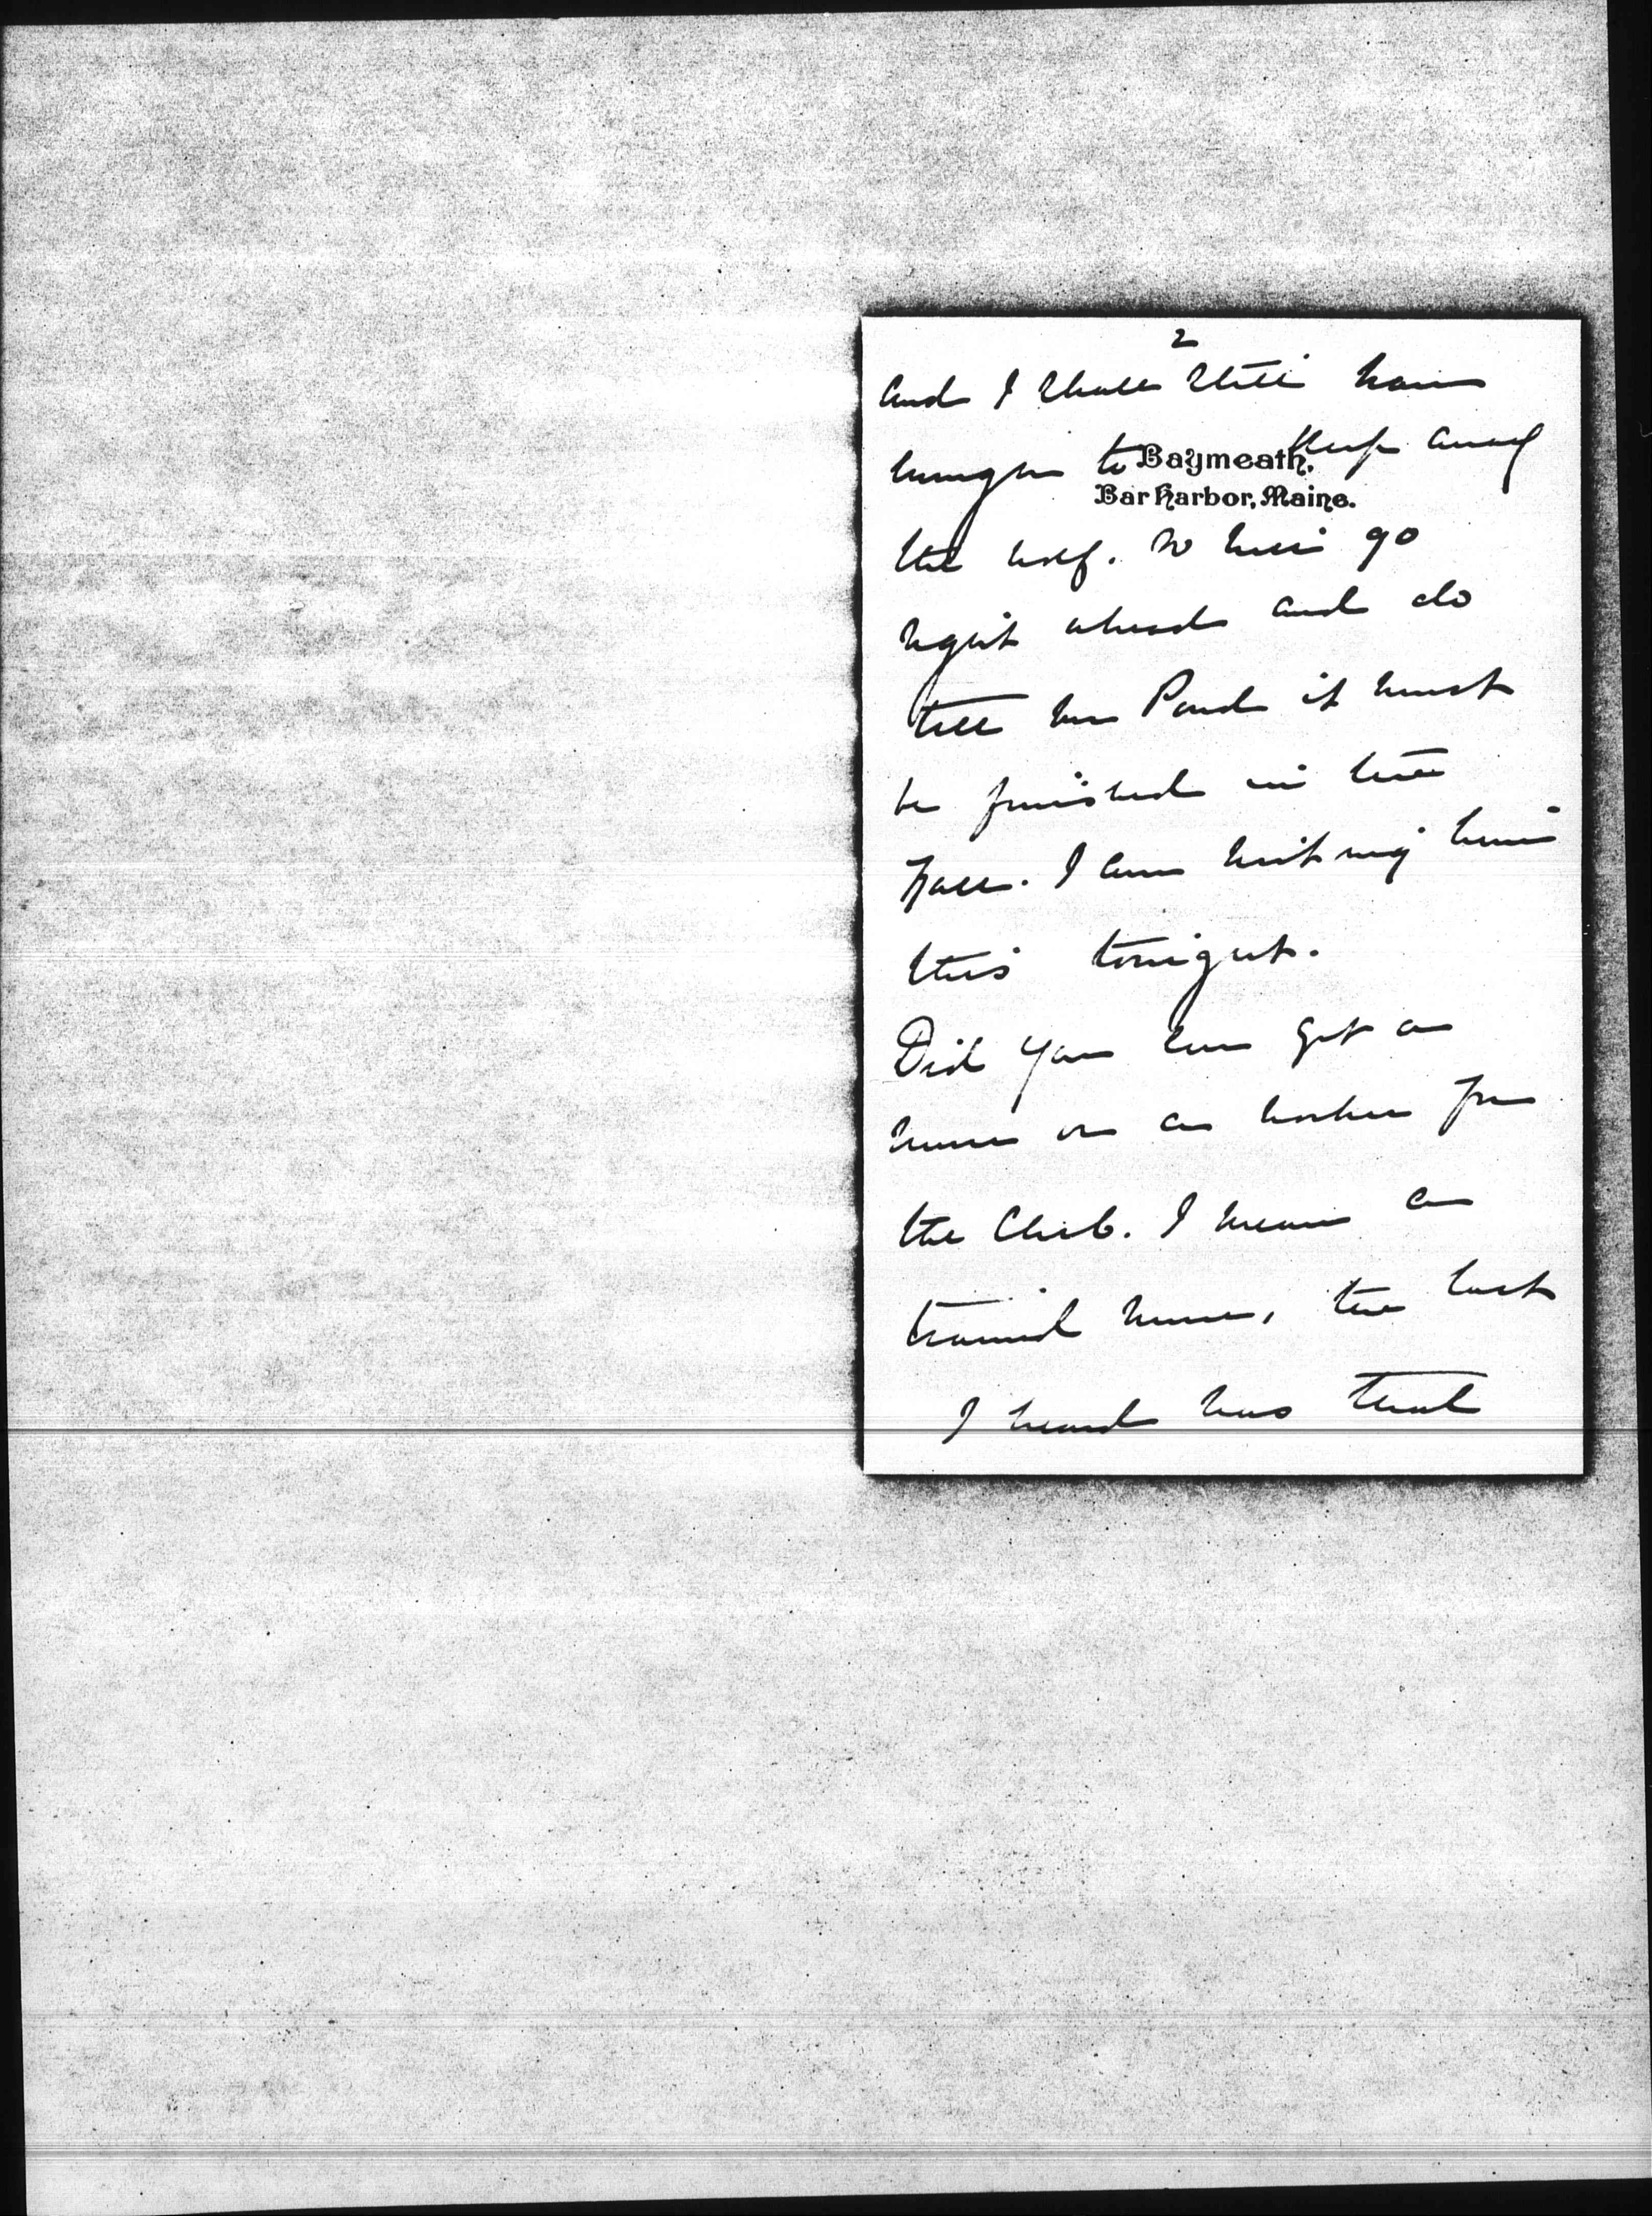 2
and I shall still have
enough to keep away
Baymeath,
Bar Harbor, Maine.
the wolf. So will go
right ahead and do
tell Mr Pond it must
be finished in the
Fall. I am writing him
this tonight.
Did you ever get a
nurse or a worker for
the Club. I mean a
trained nurse, the last
I heard was that